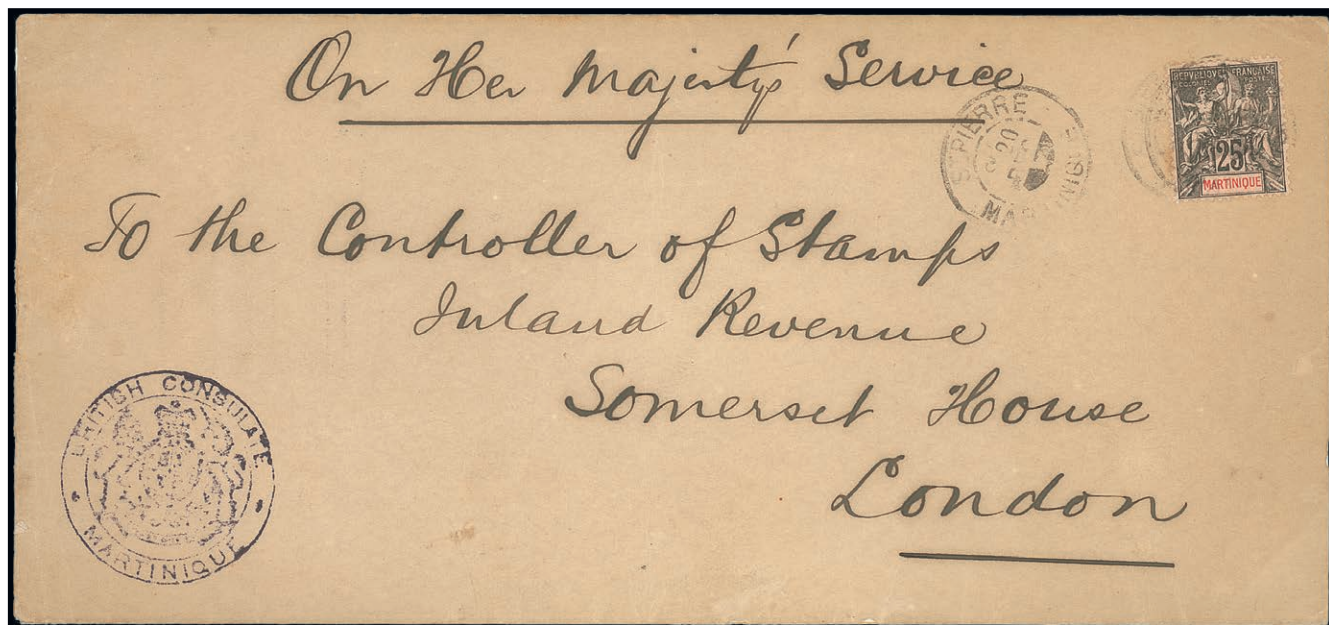 On Her Majesty's Service
REPUBLIQUE FRANÇAISE
COLONIES POSTES
25
MARTINIQUE
ST PIERRE
20
MARTINIQUE
To the Controller of Stamps
Inland Revenue
Somerset House
London
BRITISH CONSULATE
MARTINIQUE